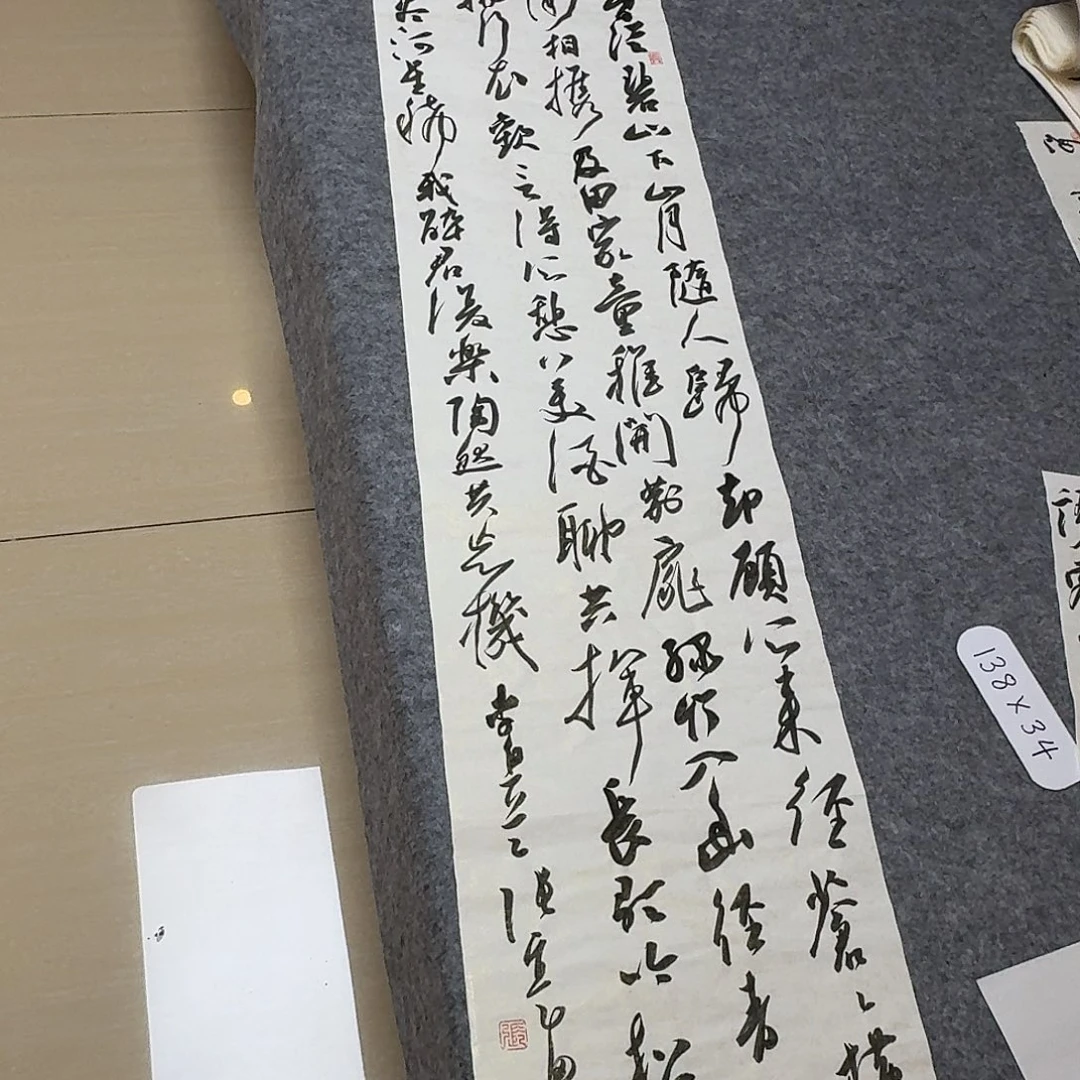 從碧山下山月隨人歸却顧所来徑蒼々橫
相攜及田家童稚開荊扉綠竹入幽徑青
行衣歡言得所憩美酒聊共揮長歌吟松
盡河星稀我醉君復樂陶然共忘機 李白
138×34